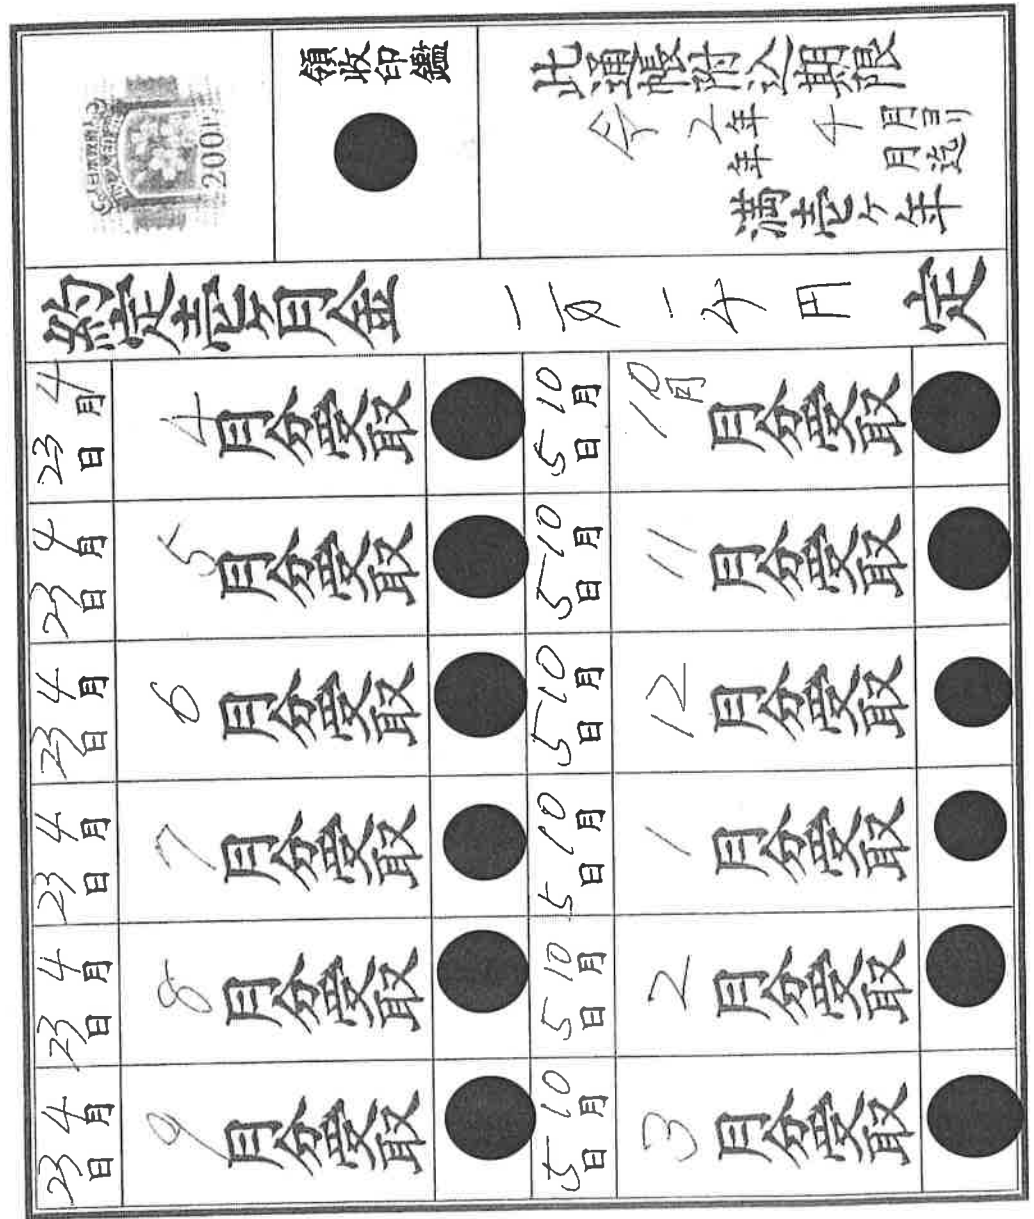 日本政府
収入印紙
200円
領收印鑑
此通帳附込期限
令2年4月ヨリ
年 月迄
満壱ヶ年
約定壱ヶ月金 一万一千円 定
4月23日 4月分受取
10月5日 10月月分受取
4月23日 5月分受取
10月5日 11月分受取
4月23日 6月分受取
10月5日 12月分受取
4月23日 7月分受取
10月5日 1月分受取
4月23日 8月分受取
10月5日 2月分受取
4月23日 9月分受取
10月5日 3月分受取